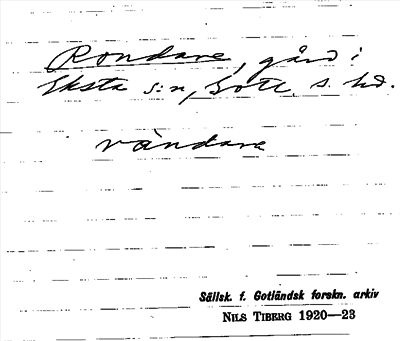 Rondare, gård i
Eksta s:n, Gotl. s. hd.
ràndarę
Sällsk. f. Gotländsk forskn. arkiv
NILS TIBERG 1920—23